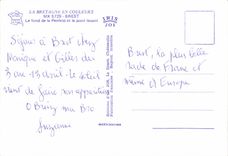 LA BRETAGNE EN COULEURS
MX 5725 - BREST
Le fond de la Penfeld et le pont levant
IRIS
Séjour à Brest chez
Monique et Gilles du
3 au 13 avril - le soleil
vient de faire son apparition
Suzanne
Brest, la plus belle
rade de France et
même d'Europe